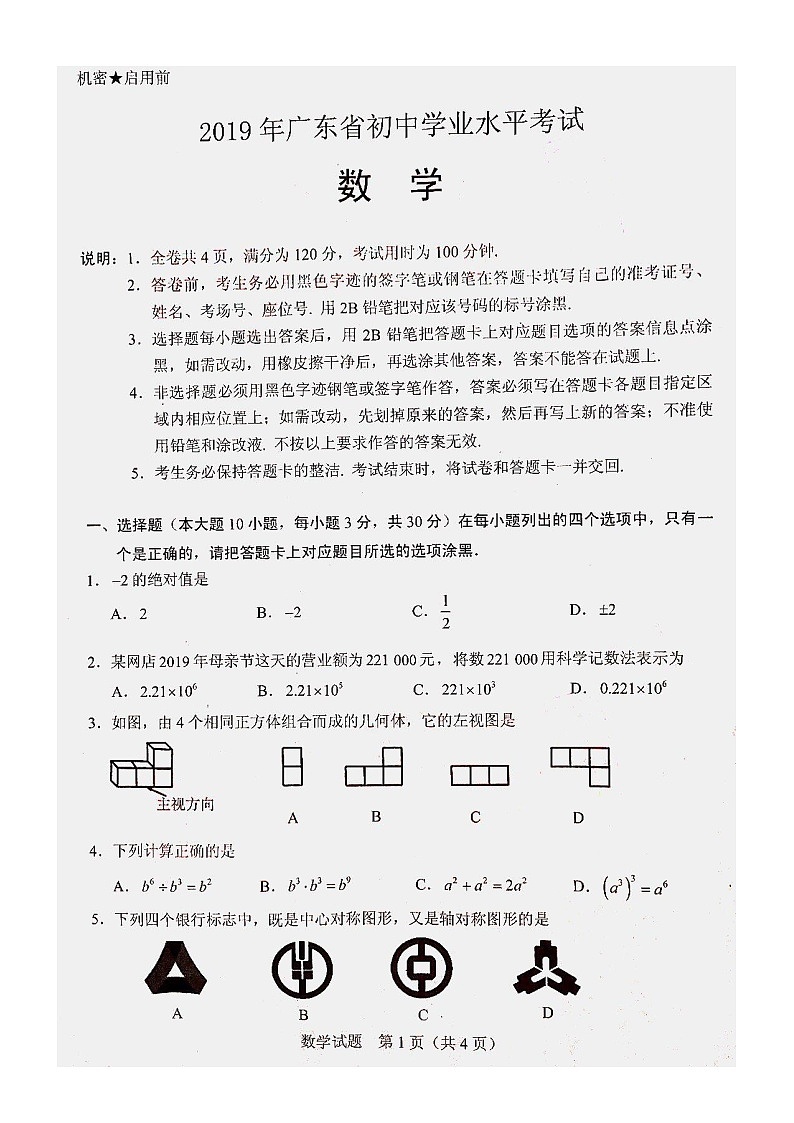 机密★启用前
2019 年广东省初中学业水平考试
数 学
说明：1．全卷共 4 页，满分为 120 分，考试用时为 100 分钟.
2．答卷前，考生务必用黑色字迹的签字笔或钢笔在答题卡填写自己的准考证号、
姓名、考场号、座位号. 用 2B 铅笔把对应该号码的标号涂黑.
3．选择题每小题选出答案后，用 2B 铅笔把答题卡上对应题目选项的答案信息点涂
黑，如需改动，用橡皮擦干净后，再选涂其他答案，答案不能答在试题上.
4．非选择题必须用黑色字迹钢笔或签字笔作答，答案必须写在答题卡各题目指定区
域内相应位置上；如需改动，先划掉原来的答案，然后再写上新的答案；不准使
用铅笔和涂改液. 不按以上要求作答的答案无效.
5．考生务必保持答题卡的整洁. 考试结束时，将试卷和答题卡一并交回.
一、选择题（本大题 10 小题，每小题 3 分，共 30 分）在每小题列出的四个选项中，只有一
个是正确的，请把答题卡上对应题目所选的选项涂黑.
1．−2 的绝对值是
A．2 B．−2 C．1/2 D．±2
2．某网店 2019 年母亲节这天的营业额为 221 000 元，将数 221 000 用科学记数法表示为
A．2.21×10⁶ B．2.21×10⁵ C．221×10³ D．0.221×10⁶
3．如图，由 4 个相同正方体组合而成的几何体，它的左视图是
主视方向
A B C D
4．下列计算正确的是
A．b⁶÷b³=b² B．b³·b³=b⁹ C．a²+a²=2a² D．(a³)³=a⁶
5．下列四个银行标志中，既是中心对称图形，又是轴对称图形的是
A B C D
数学试题 第 1 页（共 4 页）